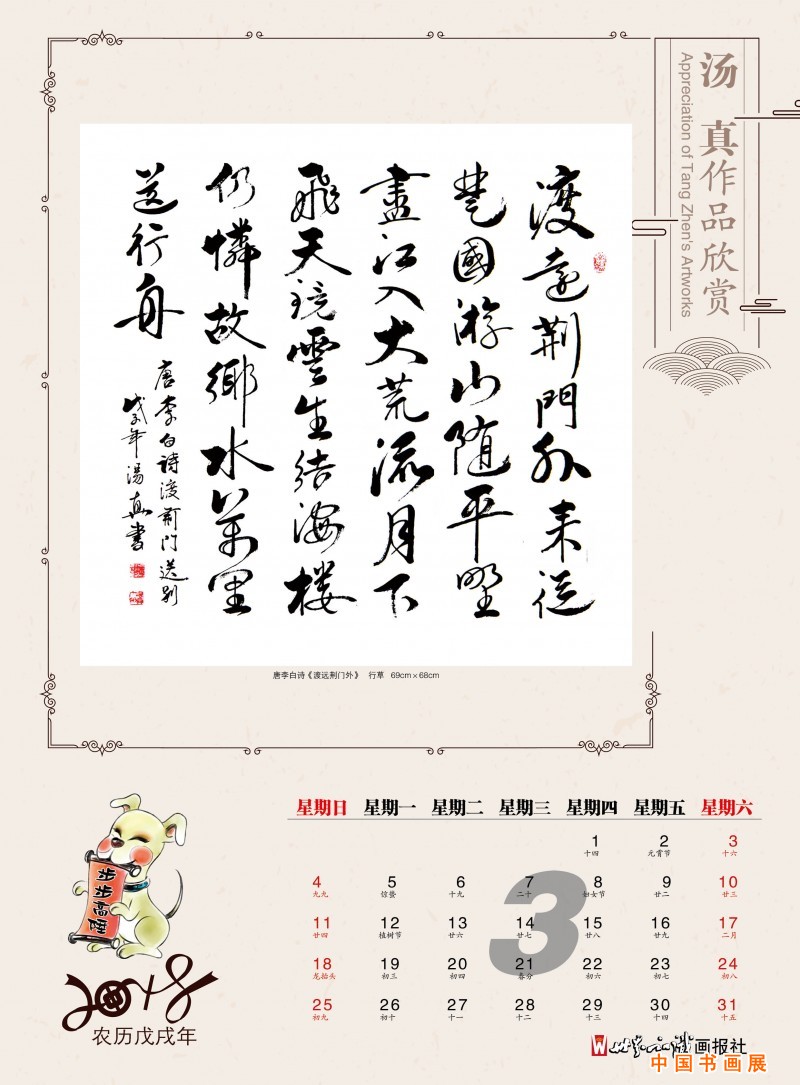 汤 真作品欣赏
Appreciation of Tang Zhen's Artworks
渡遠荆門外来從
楚國游山随平野
盡江入大荒流月下
飛天鏡雲生結海楼
仍憐故鄉水萬里
送行舟
唐李白诗渡荆门送别
戊戌年湯真書
唐李白诗《渡远荆门外》 行草 69cm×68cm
步步高陞
2018
农历戊戌年
3
星期日 星期一 星期二 星期三 星期四 星期五 星期六
1 2 3
十四 元宵节 十六
4 5 6 7 8 9 10
九九 惊蛰 十九 二十 妇女节 廿二 廿三
11 12 13 14 15 16 17
廿四 植树节 廿六 廿七 廿八 廿九 二月
18 19 20 21 22 23 24
龙抬头 初三 初四 春分 初六 初七 初八
25 26 27 28 29 30 31
初九 初十 十一 十二 十三 十四 十五
画报社
中国书画展